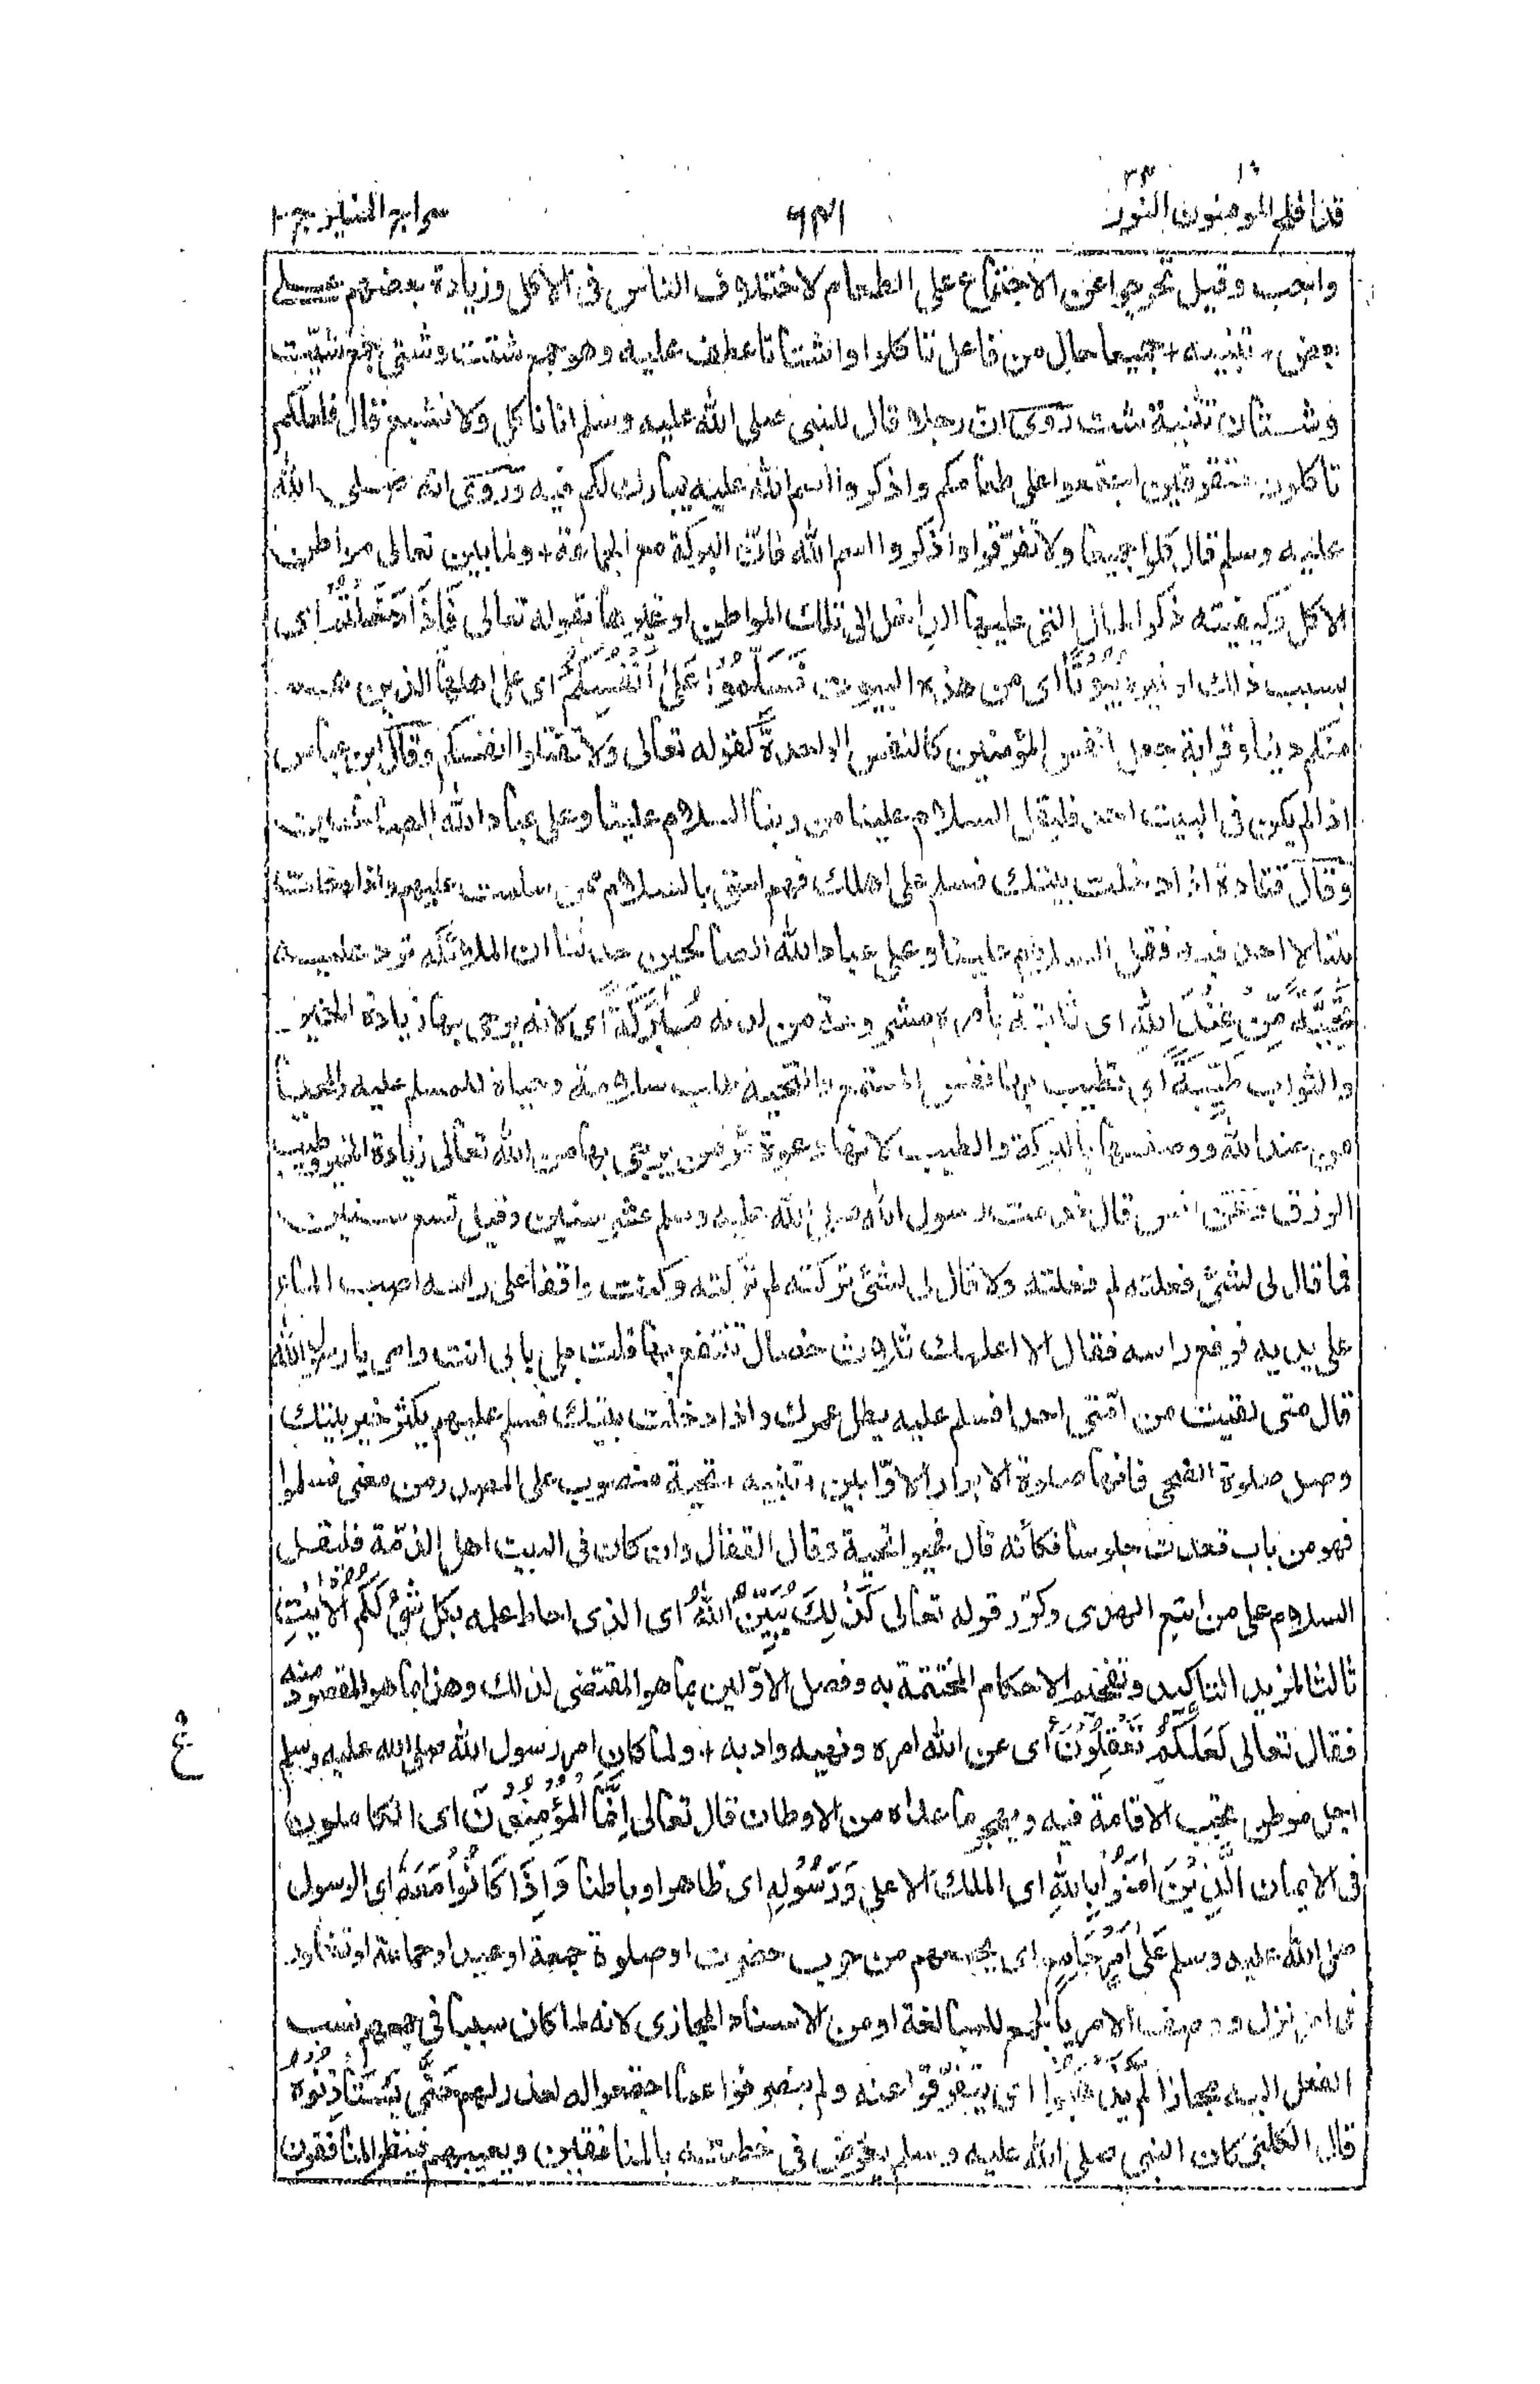 قد افلح المومنون ١٨ النور ٢٤
٦٤١
سراج المنير ج ٢
واجب وقيل تحرجوا عن الاجتماع على الطعام لاختلاف الناس فى الاكل وزيادة بعضهم على
بعض + تنبيه + جميعا حال من فاعل تاكلوا واشتاتا عطف عليه وهو جمع شتت وشتى جمع شتيت
وشتان تثنية شت روى ان رجلا قال للنبى صلى الله عليه وسلم انا ناكل ولا نشبع قال فلعلكم
تاكلون متفرقين اجتمعوا على طعامكم واذكروا اسم الله عليه يبارك لكم فيه وروى انه صلى الله
عليه وسلم قال كلوا جميعا ولا تفرقوا واذكروا اسم الله فان البركة مع الجماعة + ولما بين تعالى مواطن
الاكل وكيفيته ذكر الحال التى عليها الداخل الى تلك المواطن او غيرها بقوله تعالى فَاِذَا دَخَلْتُمْ اى
بسبب ذلك او غيره بُيُوْتًا اى من هذه البيوت فَسَلِّمُوْا عَلٰى اَنْفُسِكُمْ اى على اهلها الذين هم
منكم دينا وقرابة جعل انفس المؤمنين كالنفس الواحدة كقوله تعالى ولا تقتلوا انفسكم وقال ابن عباس
اذا لم يكن فى البيت احد فليقل السلام علينا من ربنا السلام علينا وعلى عباد الله الصالحين
وقال قتادة اذا دخلت بيتك فسلم على اهلك فهم احق بالسلام ممن سلمت عليهم واذا دخلت
بيتا لا احد فيه فقل السلام علينا وعلى عباد الله الصالحين حدثنا ان الملائكة ترد عليه
تَحِيَّةً مِّنْ عِنْدِ اللهِ اى ثابتة بأمره مشروعة من لدنه مُبٰرَكَةً اى لانه يرجى بها زيادة الخير
والثواب طَيِّبَةً اى تطيب بها نفس المستمع والتحية طلب سلامة وحياة للمسلم عليه والمحيا
من عند الله ووصفها بالبركة والطيب لانها دعوة مؤمن يرجى بها من الله تعالى زيادة الخير وطيب
الرزق وعن انس قال خدمت رسول الله صلى الله عليه وسلم عشر سنين وقيل تسع سنين
فما قال لى لشئ فعلته لم فعلته ولا قال لى لشئ تركته لم تركته وكنت واقفا على راسه اصب الماء
على يديه فرفع راسه فقال الا اعلمك ثلاث خصال تنتفع بها قلت بلى بابى انت وامى يا رسول الله
قال متى لقيت من امتى احدا فسلم عليه يطل عمرك واذا دخلت بيتك فسلم عليهم يكثر خير بيتك
وصل صلوة الضحى فانها صلوة الابرار الاوابين + تنبيه + تحية منصوب على المصدر من معنى فسلموا
فهو من باب قعدت جلوسا فكأنه قال فحيوا تحية وقال القفال وان كان فى البيت اهل الذمة فليقل
السلام على من اتبع الهدى وكرر قوله تعالى كَذٰلِكَ يُبَيِّنُ اللهُ اى الذى احاط علمه بكل شئ لَكُمُ الْاٰيٰتِ
ثالثا لمزيد التاكيد وتفخيم الاحكام المختتمة به وفصل الاولين بما هو المقتضى لذلك وهذا بما هو المقصود منه
فقال تعالى لَعَلَّكُمْ تَعْقِلُوْنَ اى عن الله امره ونهيه وادبه + ولما كان امر رسول الله صلى الله عليه وسلم
ع
اجل موطن تجب الاقامة فيه ويهجر ما عداه من الاوطان قال تعالى اِنَّمَا الْمُؤْمِنُوْنَ اى الكاملون
فى الايمان الَّذِيْنَ اٰمَنُوْا بِاللهِ اى الملك الاعلى وَرَسُوْلِهٖ اى ظاهرا وباطنا وَاِذَا كَانُوْا مَعَهٗ اى الرسول
صلى الله عليه وسلم عَلٰى اَمْرٍ جَامِعٍ اى يجمعهم من حرب حضرت او صلوة جمعة او عيد او جماعة او تشاور
فى امر نزل ووصف الامر بالجمع للمبالغة او من الاسناد المجازى لانه لما كان سببا فى جمعهم نسب
الفعل اليه مجازا لَمْ يَذْهَبُوْا اى يتفرقوا عنه ولم ينصرفوا عما اجتمعوا له لعذر لهم حَتّٰى يَسْتَاْذِنُوْهُ
قال الكلبى كان النبى صلى الله عليه وسلم يعرض فى خطبته بالمنافقين ويعيبهم فينظر المنافقون